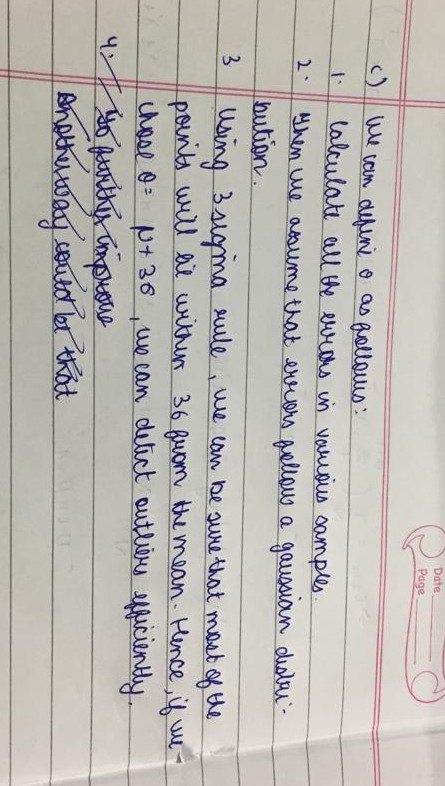 Date
Page
c) We can define θ as follows:
1. Calculate all the errors in various samples.
2. Then we assume that errors follows a gaussian distri-
bution.
3 Using 3 sigma rule, we can be sure that most of the
points will lie within 3σ from the mean. Hence, if we
chose θ= μ+3σ, we can detect outliers efficiently.
4. To further improve
Another way could be that